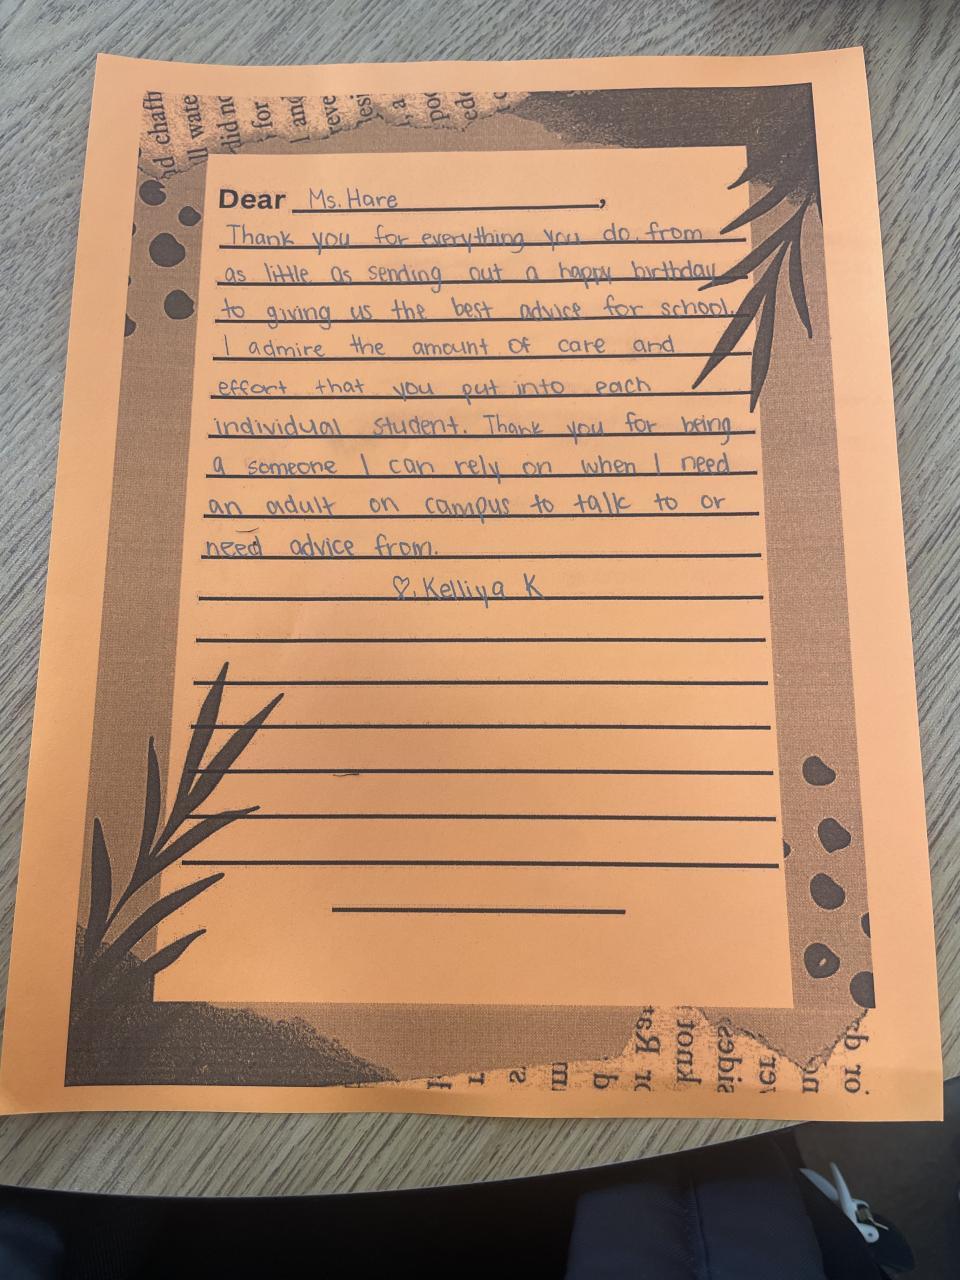 nd chafin
ll wate
did no
for
l and
reve
esi
, a
poo
ede
Dear Ms. Hare ,
Thank you for everything you do, from
as little as sending out a happy birthday
to giving us the best advice for school.
I admire the amount of care and
effort that you put into each
individual student. Thank you for being
a someone I can rely on when I need
an adult on campus to talk to or
need advice from.
♡, Kelliya K
or Rat
knot
sides
ver
or d